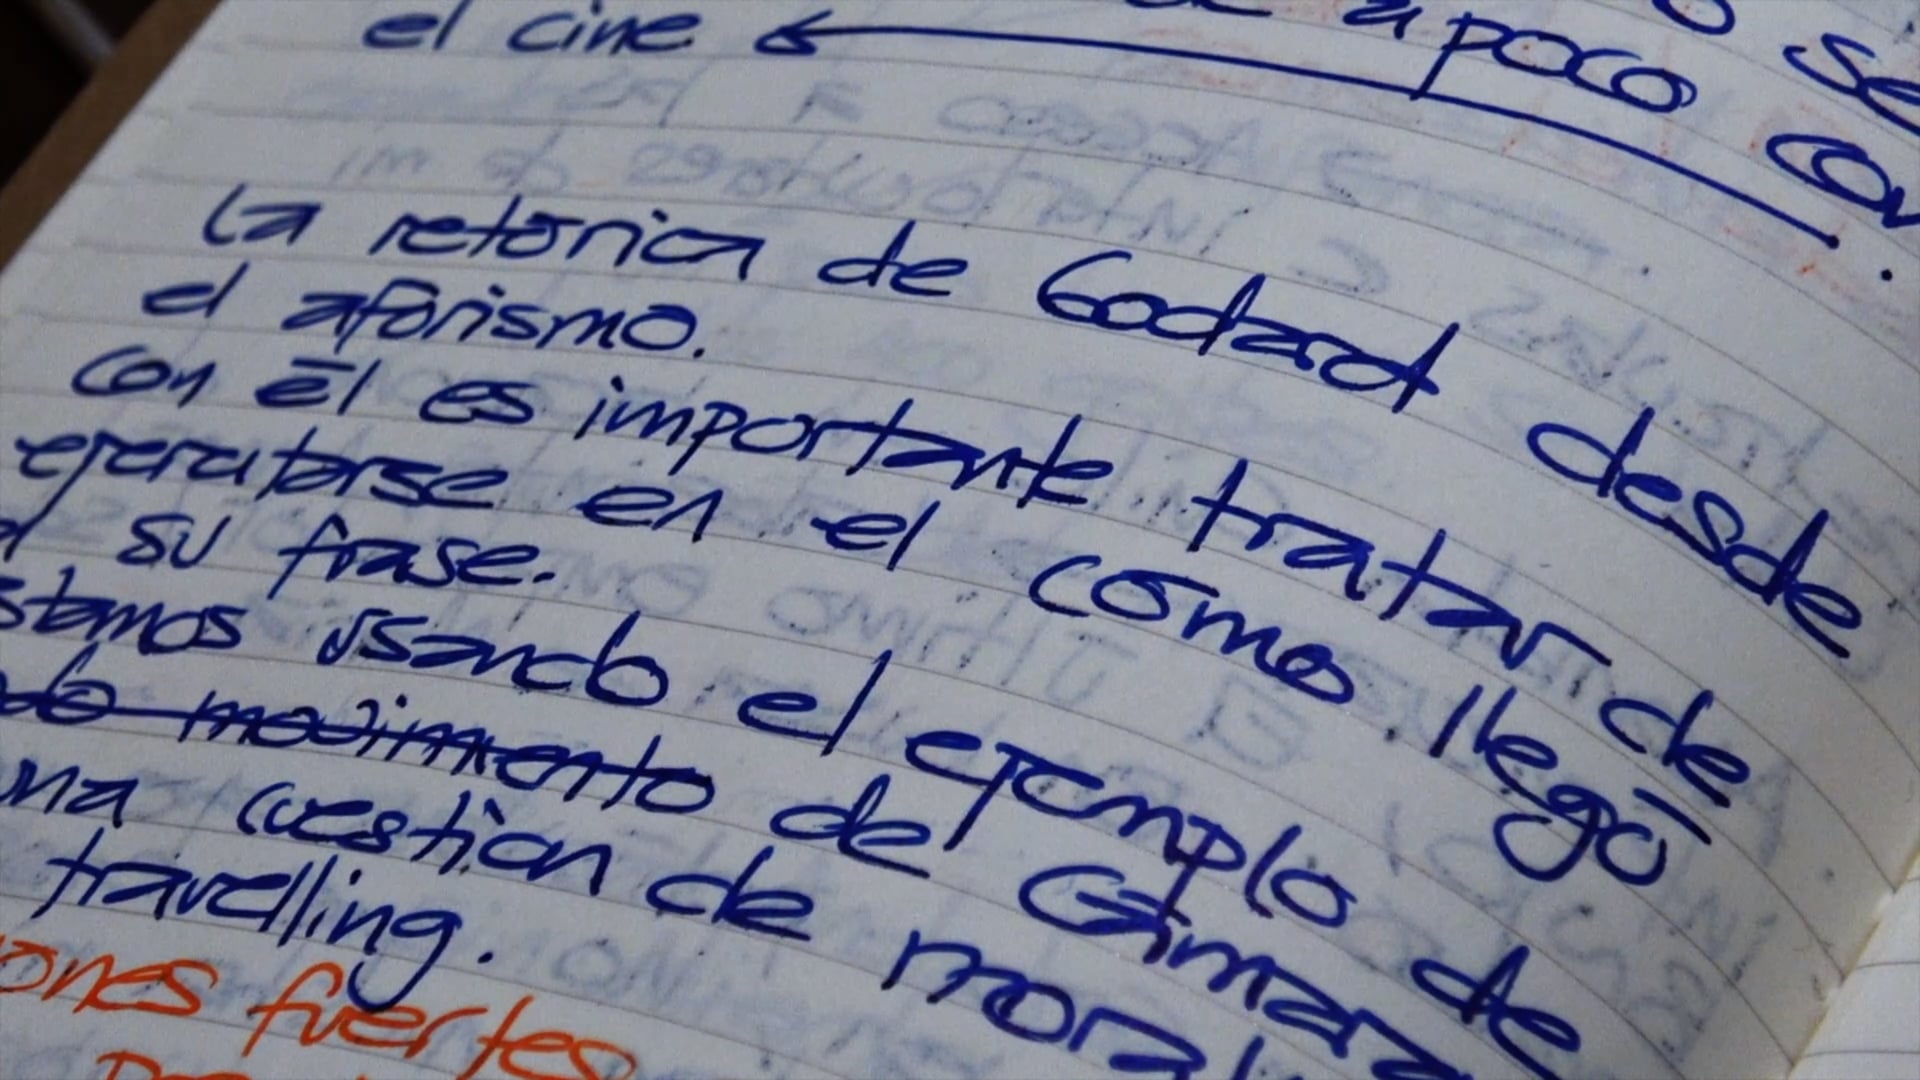 a poco se
el cine
con
La retórica de Godard desde
el aforismo.
Con él es importante tratar de
ejercitarse en el cómo llegó
su frase.
stamos usando el ejemplo de
do movimiento de Cámara
una cuestión de moral
travelling.
ones fuertes